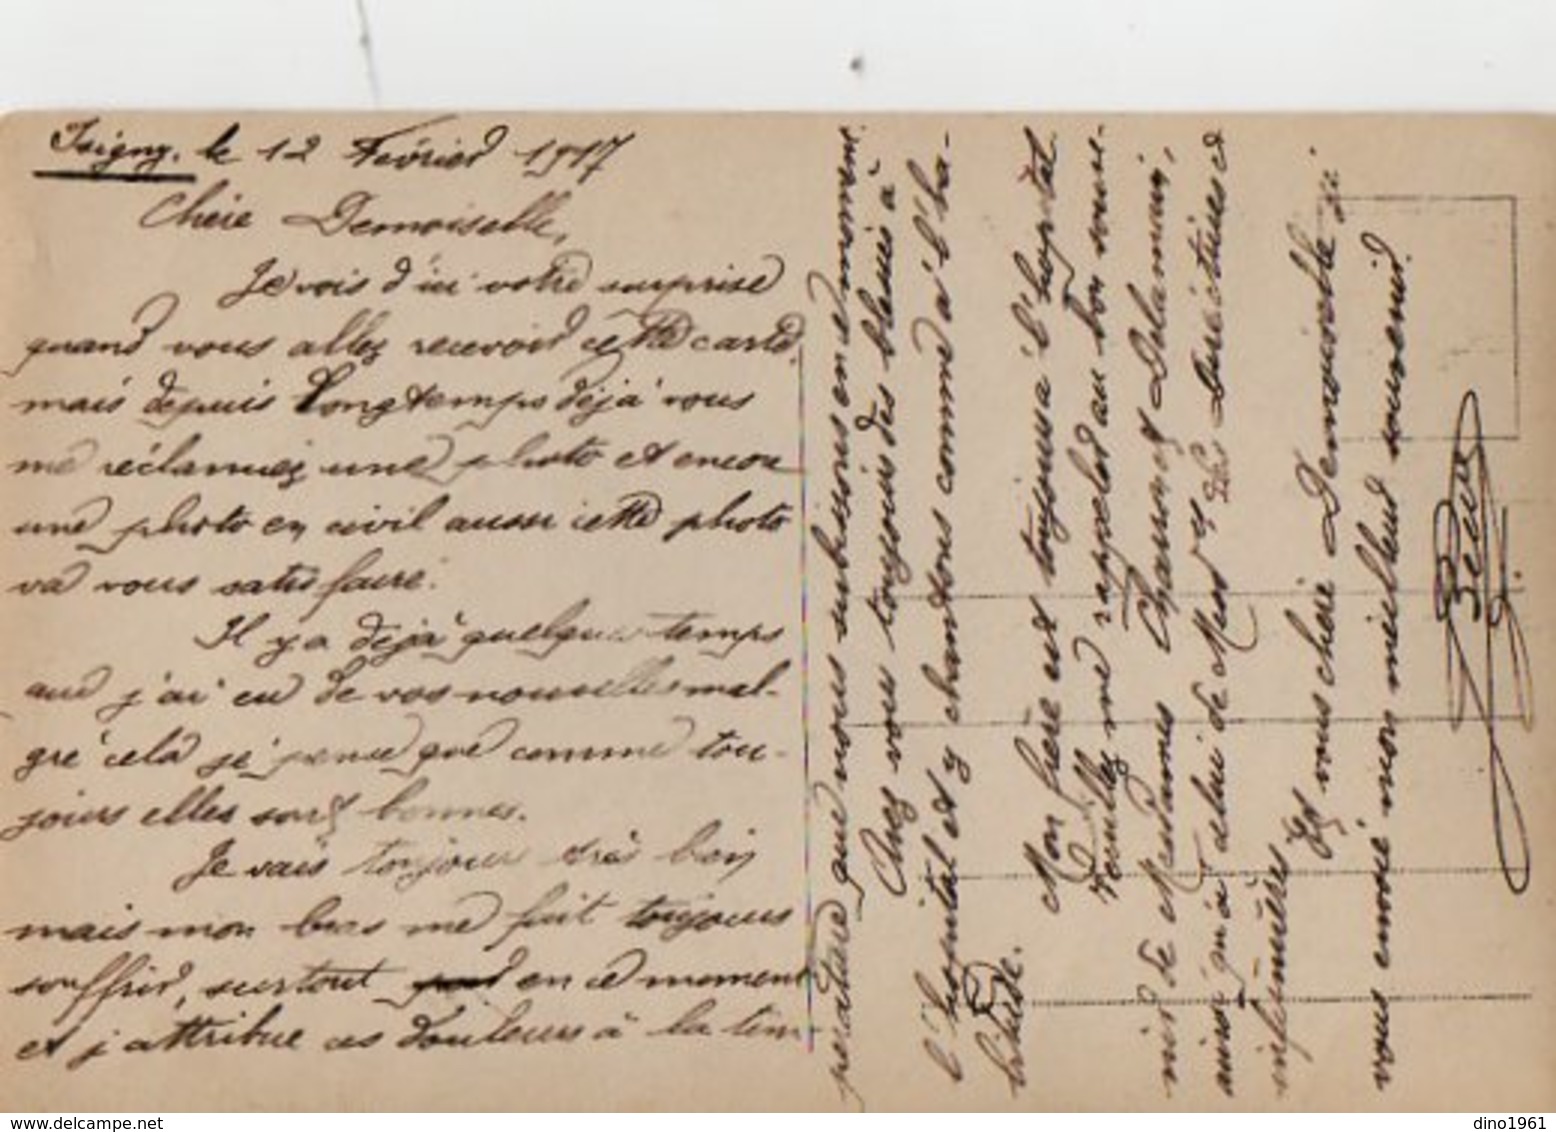 Isigny, le 12 Février 1917
Chère Demoiselle,
Je vois d'ici votre surprise
quand vous allez recevoir cette carte,
mais depuis longtemps déjà vous
me réclamiez une photo et encore
une photo en civil aussi cette photo
va vous satisfaire.
Il y a déjà quelques temps
que j'ai eu de vos nouvelles mal-
gré cela je pense que comme tou-
jours elles sont bonnes.
Je vais toujours très bien
mais mon bras me fait toujours
souffrir, surtout en ce moment
et j'attribue ces douleurs à la tem-
pérature que nous subissons en ce moment.
Avez vous toujours des blessés à
l'hopital et y chantons comme à l'ha-
bitude.
Mon frère est toujours à l'hopital.
Veuillez me rappeler au bon souve-
nir de Mesdames et Delamin,
ainsi qu'à celui de Mesd des Directrices et
infirmières
Et vous chère Demoiselle je
vous envoie mon meilleur souvenir.
dino1961